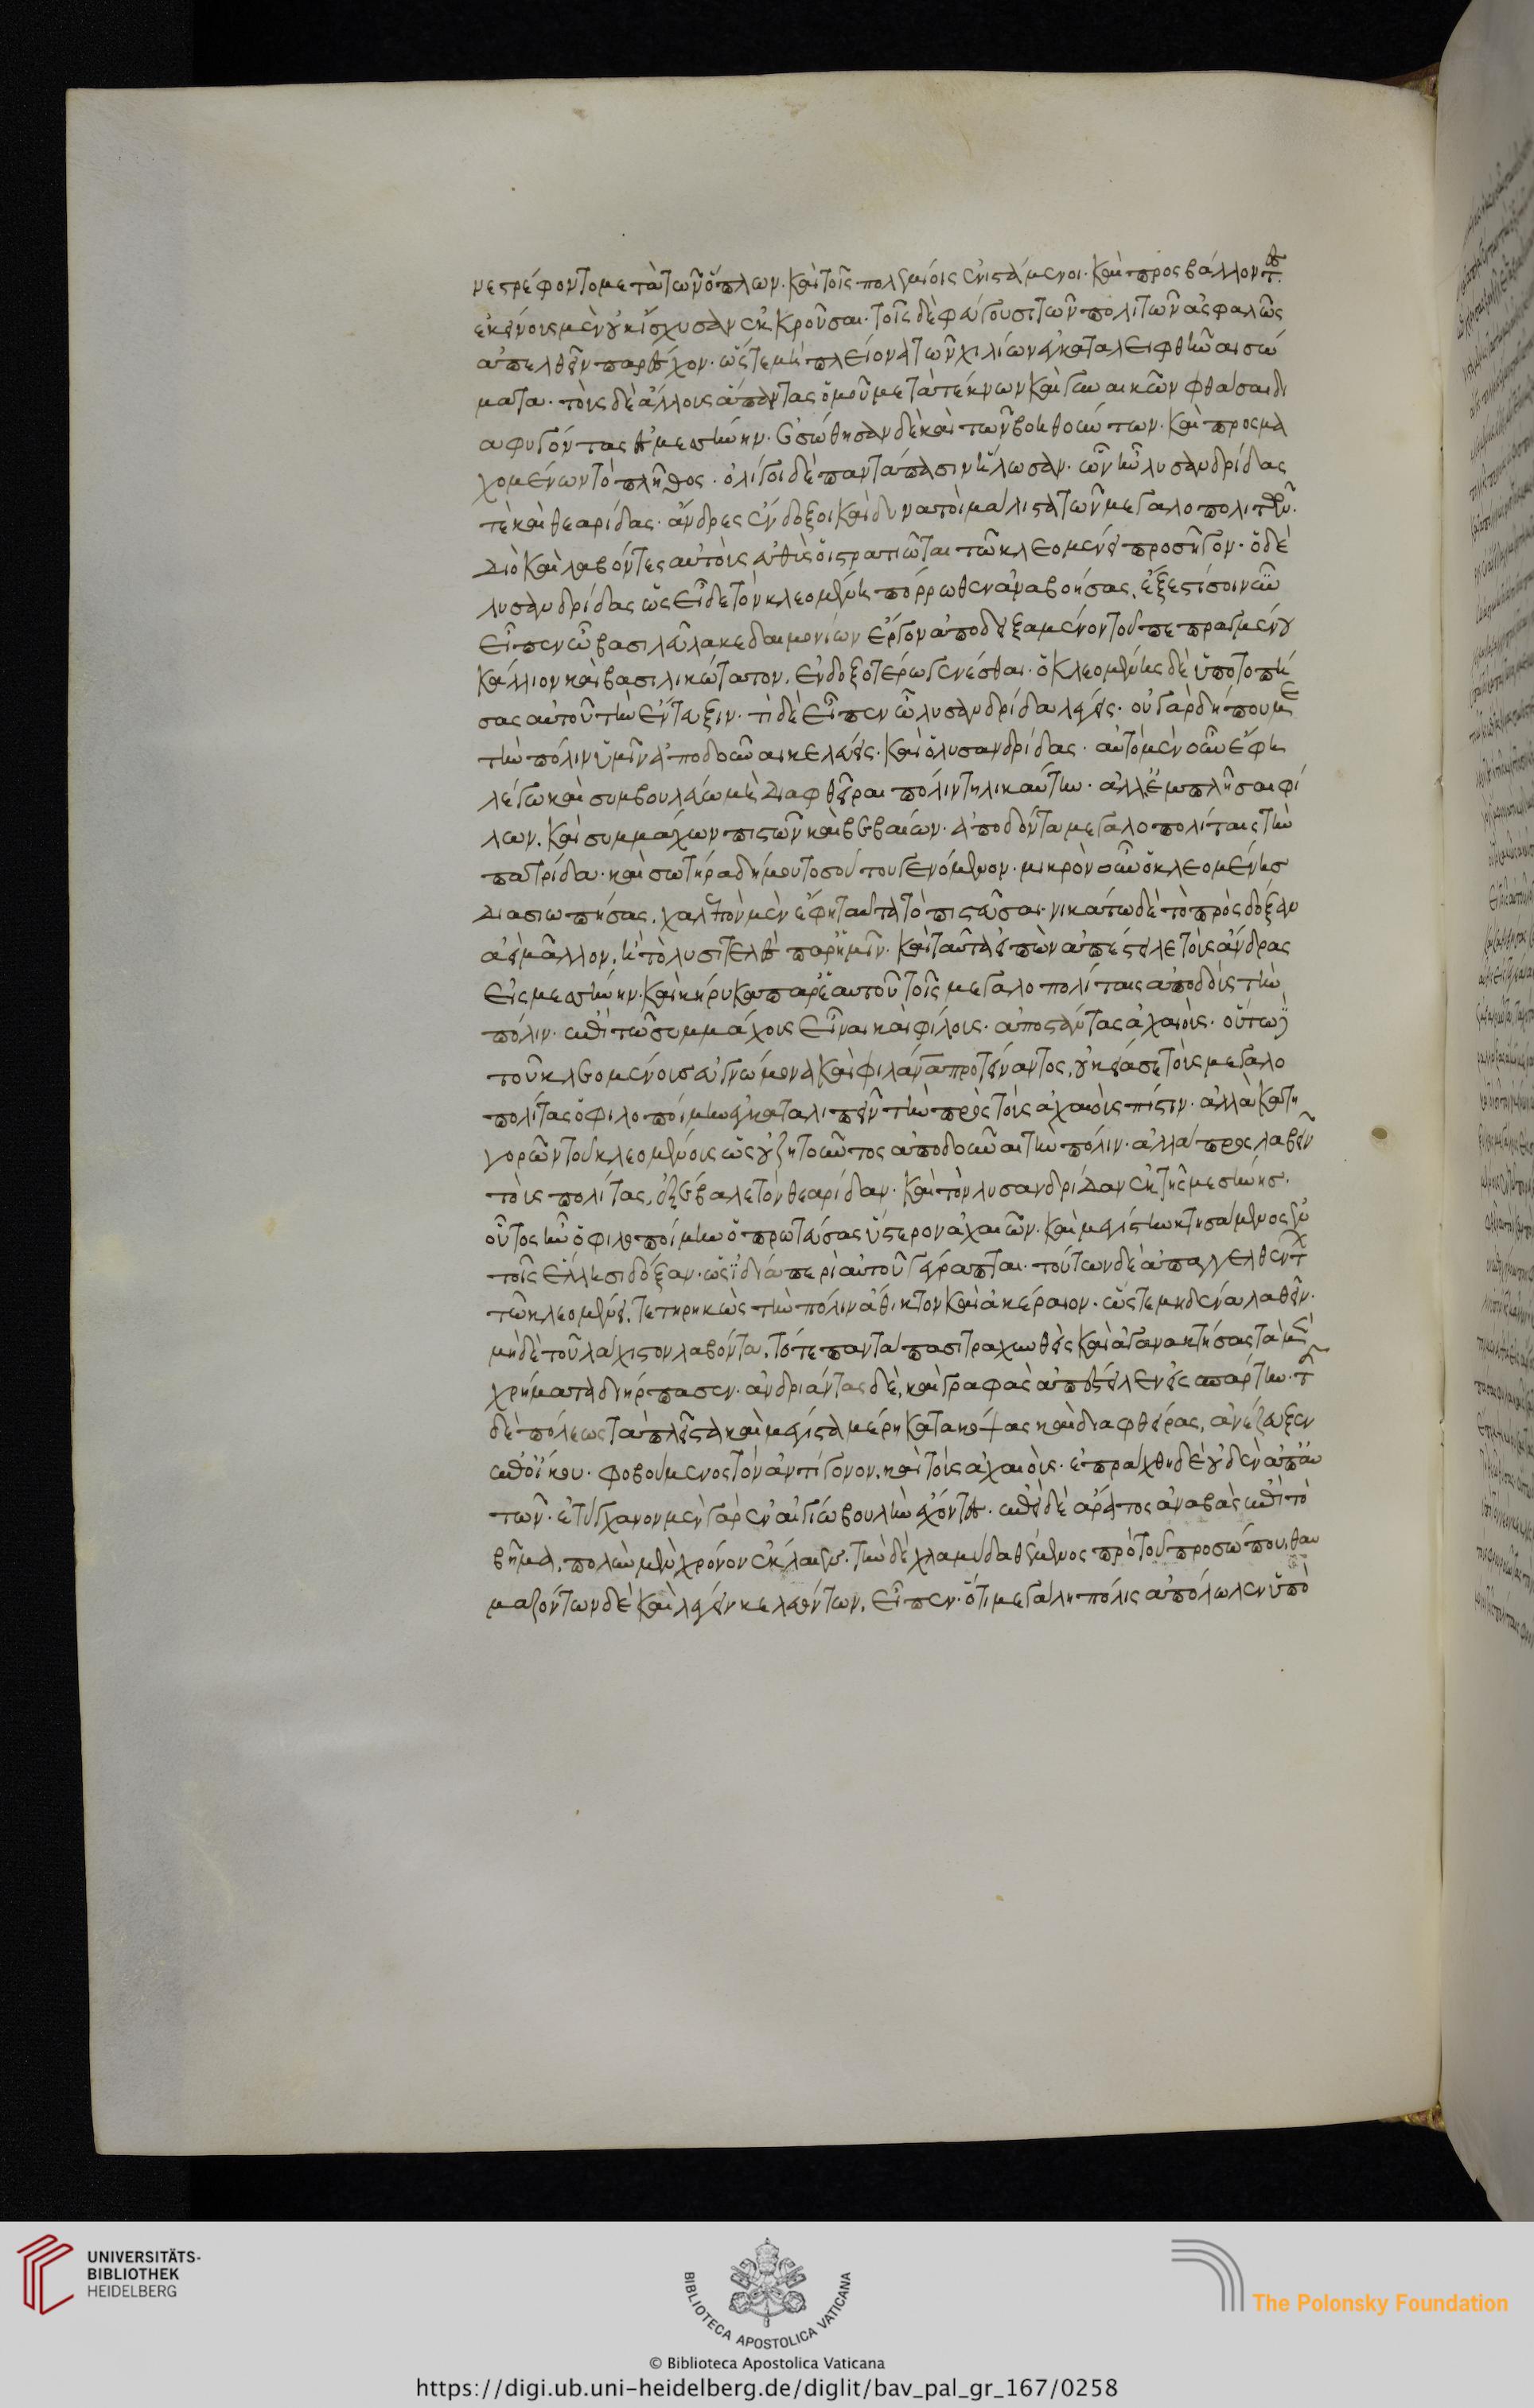 νεστρέφοντο μετὰ τῶν ὅπλων. καὶ τοῖς πολεμίοις ἐνιστάμενοι. καὶ προσβάλλοντες
ἐκείνους μὲν οὐκ ἴσχυσαν ἐκκροῦσαι. τοῖς δὲ φεύγουσι τῶν πολιτῶν ἀσφαλῶς
ἀπελθεῖν παρέσχον. ὥστε μὴ πλείονα τῶν χιλίων ἐγκαταλειφθῆναι σώ
ματα. τοὺς δὲ ἄλλους ἅπαντας ὁμοῦ μετὰ τέκνων καὶ γυναικῶν φθάσαι δι
αφυγόντας εἰς μεσήνην. ἐσώθησαν δὲ καὶ τῶν βοηθούντων. καὶ προσμα
χομένων τὸ πλῆθος. ὀλίγοι δὲ παντάπασιν ἥλωσαν. ὧν ἦν λυσανδρίδας
τὲ καὶ θεαρίδας. ἄνδρες ἔνδοξοι καὶ δυνατοὶ μάλιστα τῶν μεγαλοπολιτῶν.
Διὸ καὶ λαβόντες αὐτοὺς εὐθὺς οἱ στρατιῶται τῶ κλεομένει προσῆγον. ὁ δὲ
λυσανδρίδας ὡς εἶδε τὸν κλεομένη πόρρωθεν ἀναβοήσας, ἔξεστί σοι νῦν
εἶπεν ὦ βασιλεῦ λακεδαιμονίων ἔργον ἀποδειξαμένον τοῦ πεπραγμένου
κάλλιον καὶ βασιλικώτατον. ἐνδοξοτέρω γενέσθαι. ὁ κλεομένης δὲ ὑποτοπή
σας αὐτοῦ τὴν ἔντευξιν. τί δὲ εἶπεν ὦ λυσανδρίδα λέγεις. οὐ γὰρ δήπου με
τὴν πόλιν ὑμῖν ἀποδοῦναι κελεύεις. καὶ ὁ λυσανδρίδας. αὐτὸ μὲν οὖν ἔφη
λέγω καὶ συμβουλεύω μὴ διαφθεῖραι πόλιν τηλικαύτην. ἀλλ' ἐμπλῆσαι φί
λων. καὶ συμμάχων πιστῶν καὶ βεβαίων. ἀποδόντα μεγαλοπολίταις τὴν
πατρίδα. καὶ σωτῆρα δήμου τοσούτου γενόμενον. μικρὸν οὖν ὁ κλεομένης
διασιωπήσας. χαλεπὸν μὲν ἔφη ταῦτα τὸ πιστεῦσαι. νικάτω δὲ τὸ πρὸς δόξαν
ἀεὶ μᾶλλον, ἢ τὸ λυσιτελὲς παρ' ἡμῖν. καὶ ταῦτα εἰπὼν ἀπέστειλε τοὺς ἄνδρας
εἰς μεσήνην. καὶ κήρυκα παρ' ἑαυτοῦ τοῖς μεγαλοπολίταις ἀποδοὺς τὴν
πόλιν. ἐπὶ τῶ συμμάχους εἶναι καὶ φίλους. ἀποστάντας ἀχαιοὺς. οὕτω δὲ
τοῦ κλεομένους εὐγνώμονα καὶ φιλάνθρωπα προτείναντος, οὐκ εἴασε τοὺς μεγαλο
πολίτας ὁ φιλοποίμην ἐγκαταλιπεῖν τὴν πρὸς τοὺς ἀχαιοὺς πίστιν. ἀλλὰ κατη
γορῶν τοῦ κλεομένους ὡς οὐ ζητοῦντος ἀποδοῦναι τὴν πόλιν. ἀλλὰ προσλαβεῖν
τοὺς πολίτας, ἐξέβαλε τὸν θεαρίδαν. καὶ τὸν λυσανδρίδαν ἐκ τῆς μεσήνης.
οὗτος ἦν ὁ φιλοποίμην ὁ πρωτεύσας ὕστερον ἀχαιῶν. καὶ μεγίστην κτησάμενος ἐν
τοῖς ἕλλησι δόξαν. ὡς ἰδία περὶ αὐτοῦ γέγραπται. τούτων δὲ ἀπαγγελθέντων
τῶ κλεομένει. τετηρηκὼς τὴν πόλιν ἄθικτον καὶ ἀκέραιον. ὥστε μηδένα λαθεῖν.
μηδὲ τοὐλάχιστον λαβόντα. τότε παντάπασι τραχυνθεὶς καὶ ἀγανακτήσας τὰ μὲν
χρήματα διήρπασεν. ἀνδριάντας δὲ, καὶ γραφὰς ἀπέστειλεν εἰς σπάρτην. τῆς
δὲ πόλεως τὰ πλεῖστα καὶ μέγιστα μέρη κατακόψας καὶ διαφθείρας, ἀνέζευξεν
ἐπ' οἴκου. φοβούμενος τὸν ἀντίγονον. καὶ τοὺς ἀχαιοὺς. ἐπράχθη δὲ οὐδὲν ἀπ' αὐ
τῶν. ἐτύγχανον μὲν γὰρ ἐν αἰγίω βουλὴν ἔχοντες. ἐπεὶ δὲ ἄρατος ἀναβὰς ἐπὶ τὸ
βῆμα. πολὺν μὲν χρόνον ἔκλαιεν. τὴν δὲ χλαμύδα θέμενος πρὸ τοῦ προσώπου, θαυ
μαζόντων δὲ καὶ λέγειν κελευόντων, εἶπεν. ὅτι μεγάλη πόλις ἀπόλωλεν ὑπὸ
UNIVERSITÄTS-
BIBLIOTHEK
HEIDELBERG
BIBLIOTECA APOSTOLICA VATICANA
The Polonsky Foundation
© Biblioteca Apostolica Vaticana
https://digi.ub.uni-heidelberg.de/diglit/bav_pal_gr_167/0258